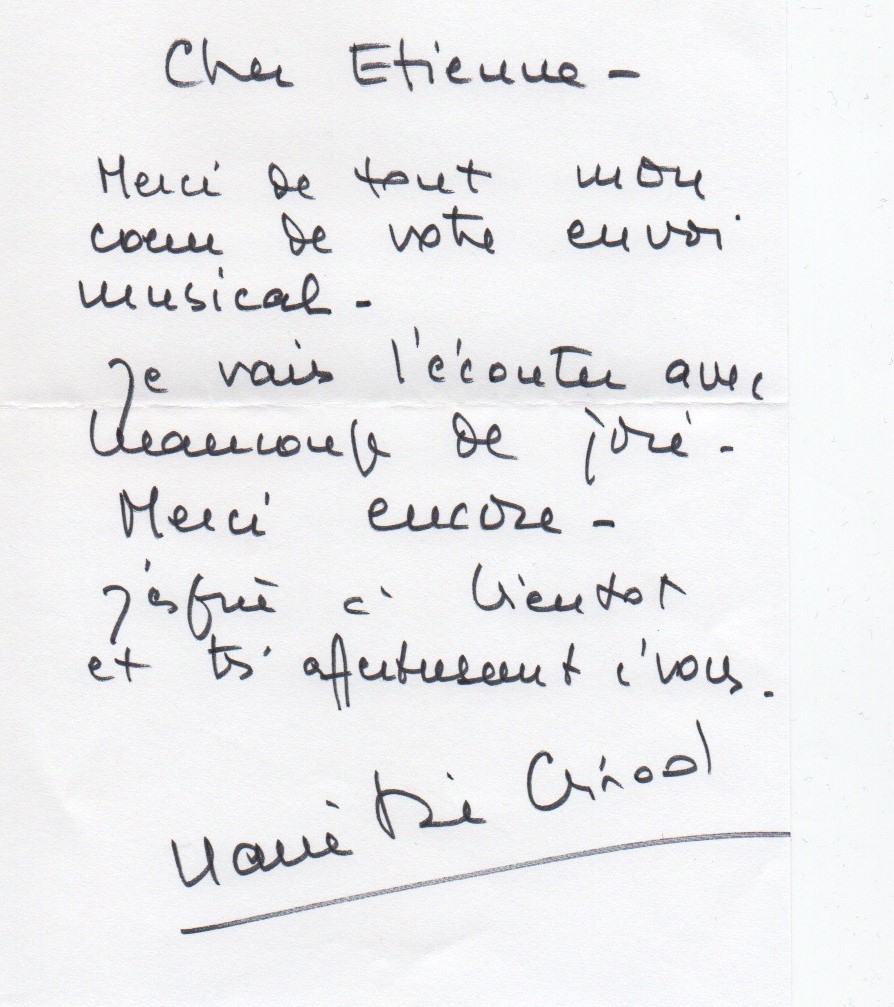 Cher Etienne -
Merci de tout mon
coeur de votre envoi
musical -
Je vais l'écouter avec
beaucoup de joie -
Merci encore -
J'espère à bientot
et très affectueusement à vous.
Marie